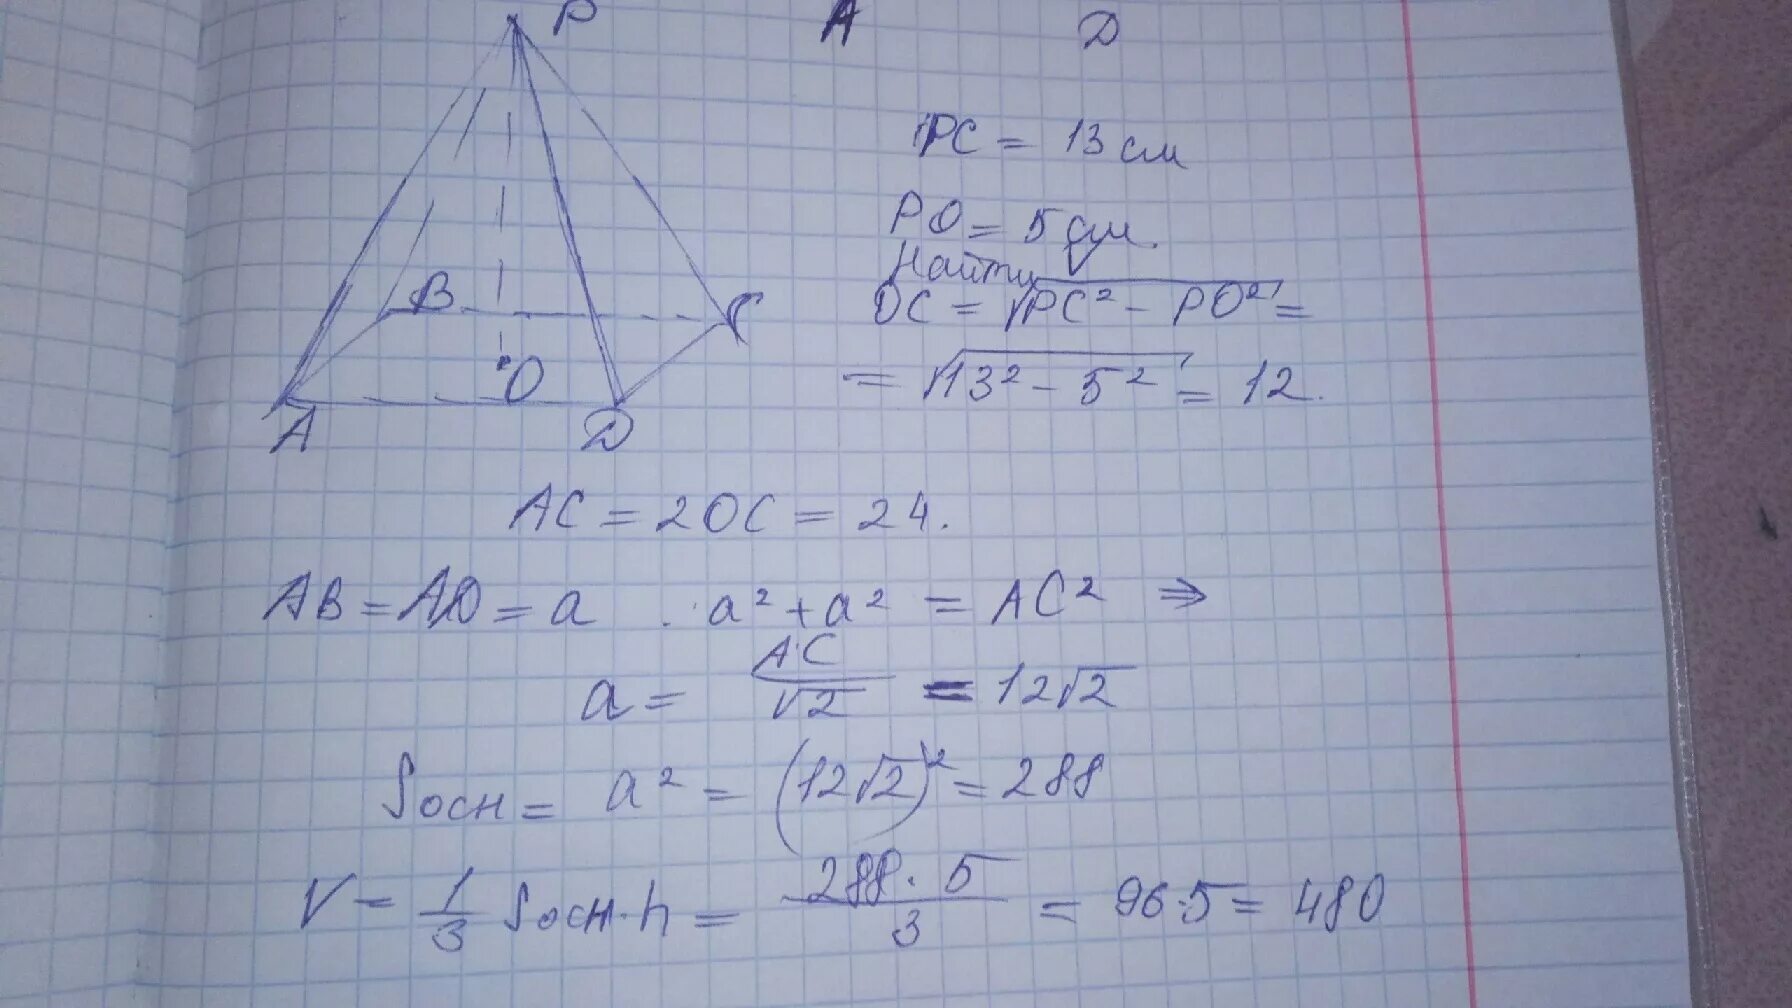 P A D
PC = 13 см
PO = 5 см.
Найти V
OC = √PC² - PO² =
= √13² - 5² = 12.
B C
O
A D
AC = 2OC = 24.
AB = AD = a . a² + a² = AC² ⇒
a = AC/√2 = 12√2
Sосн = a² = (12√2)² = 288
V = 1/3 Sосн · h = 288 · 5/3 = 96·5 = 480